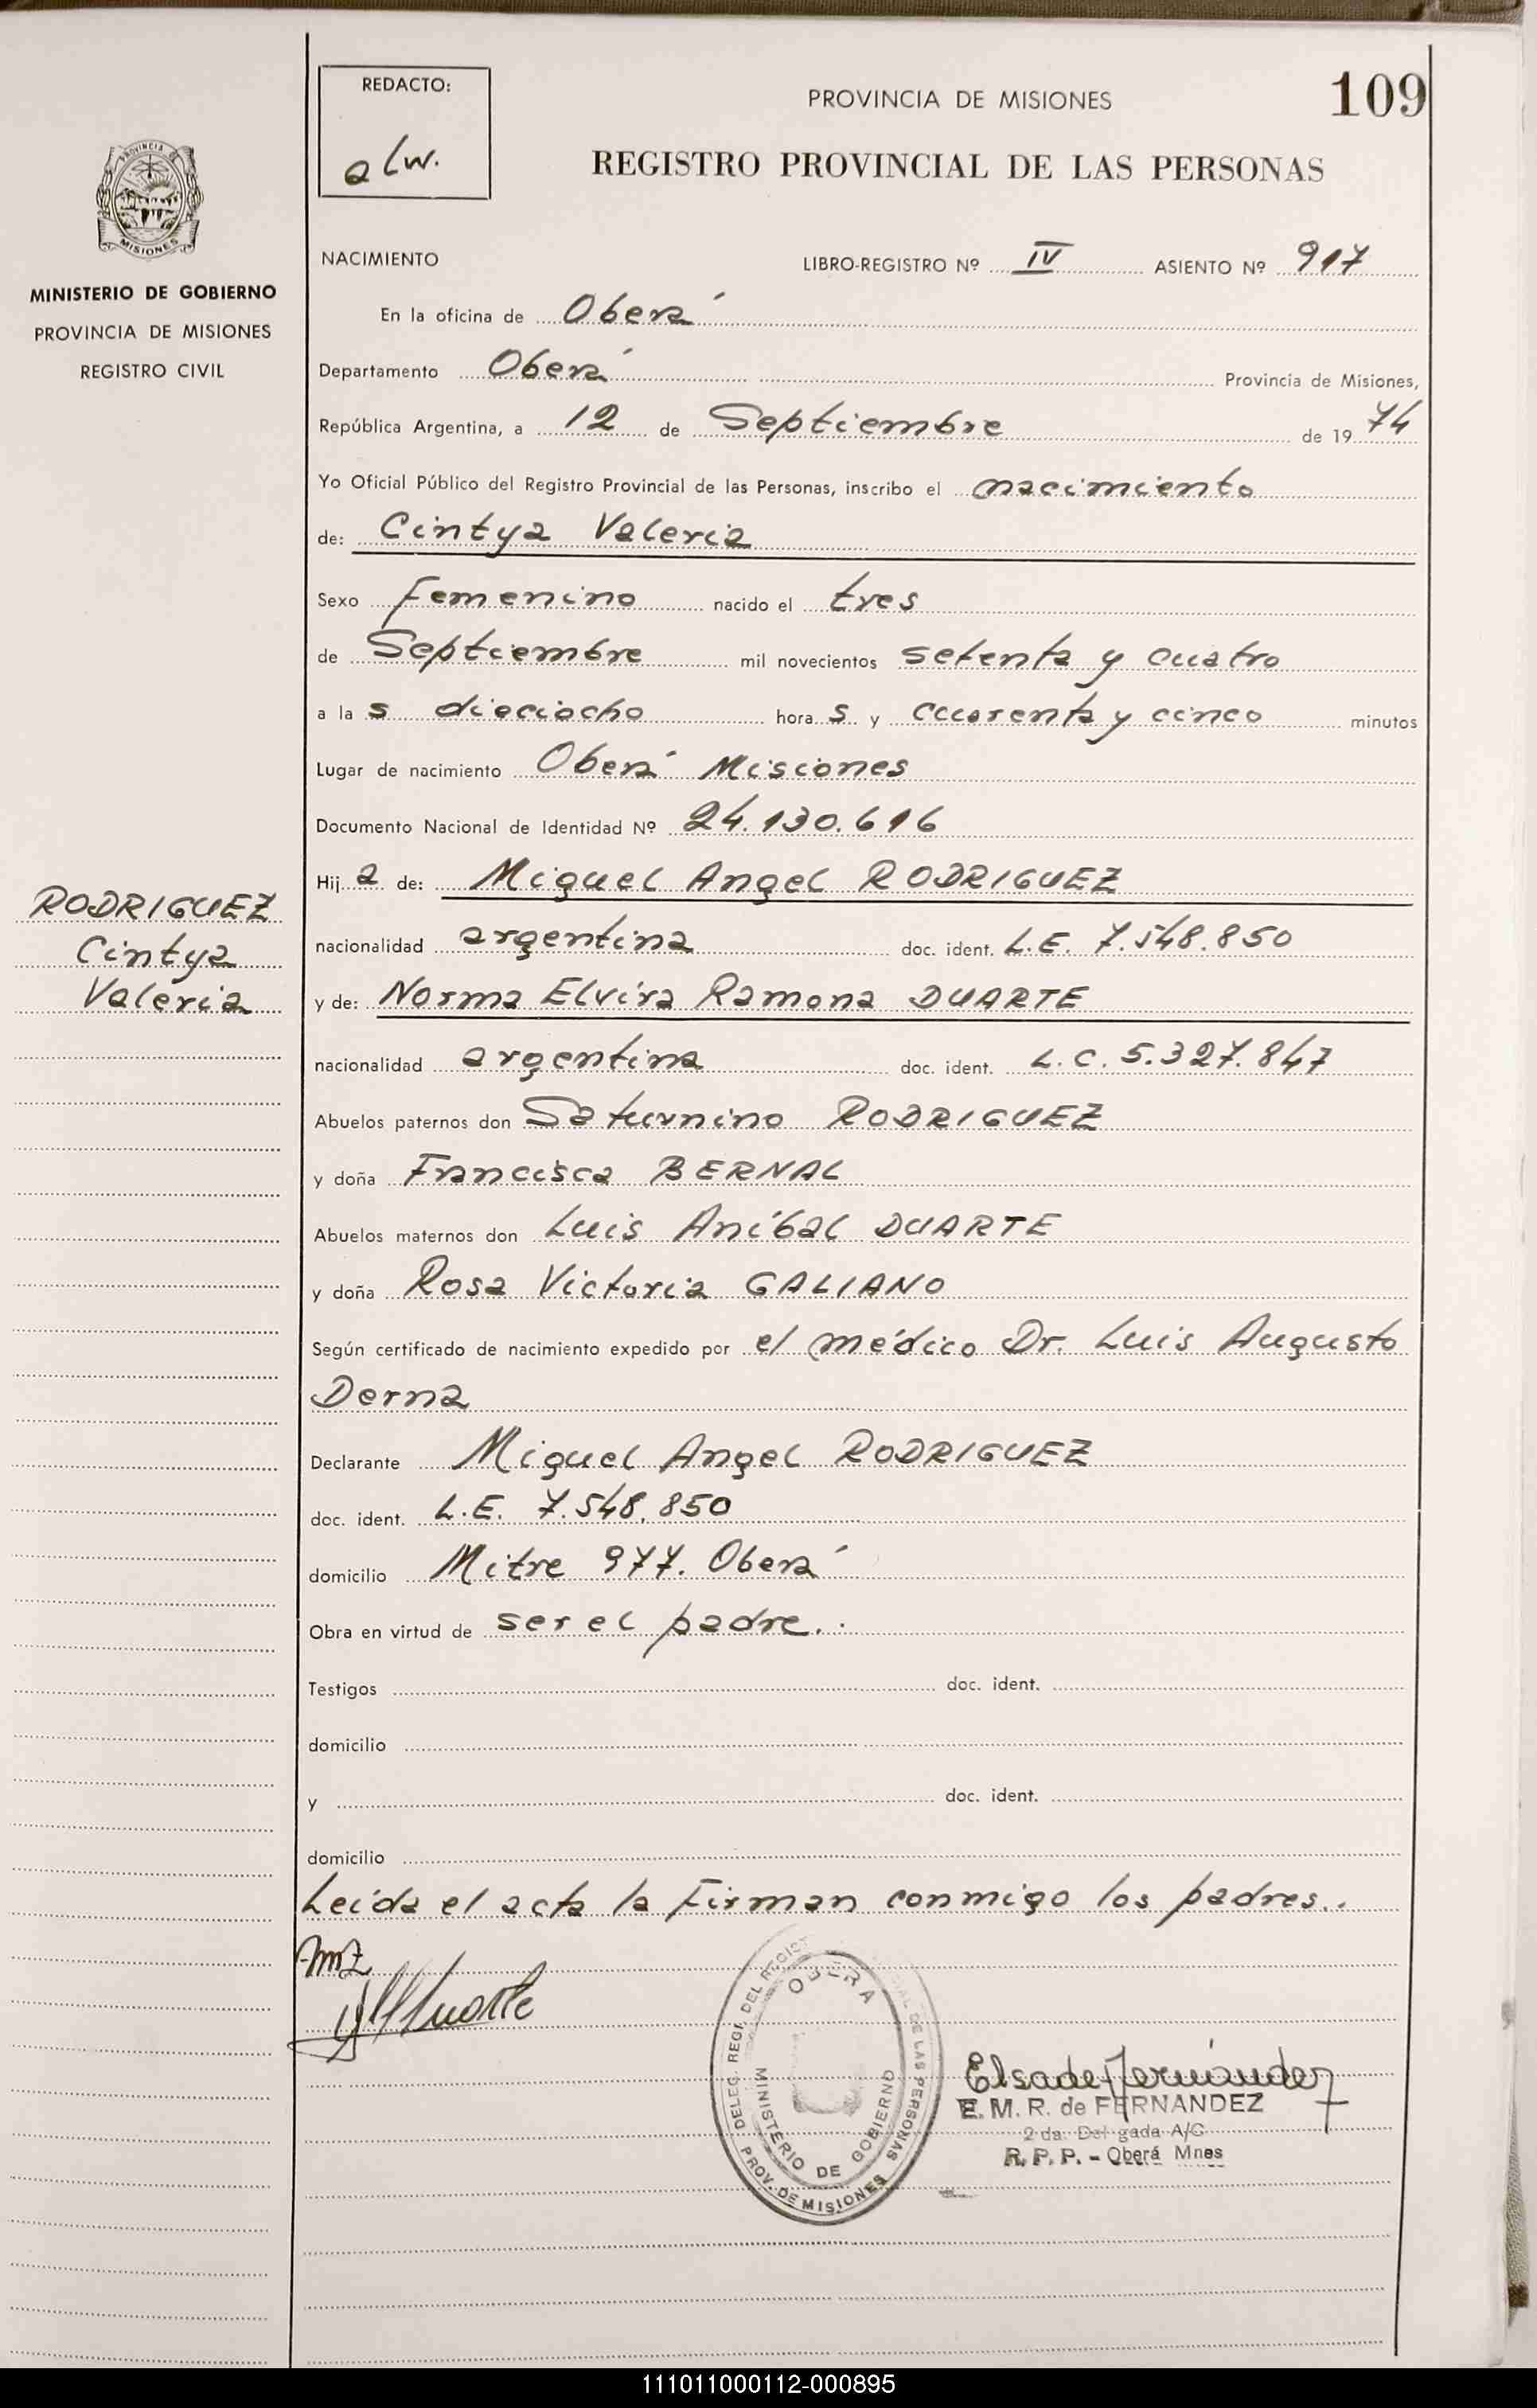 REDACTO:
alw.
PROVINCIA DE MISIONES
109
REGISTRO PROVINCIAL DE LAS PERSONAS
PROVINCIA DE
MISIONES
MINISTERIO DE GOBIERNO
PROVINCIA DE MISIONES
REGISTRO CIVIL
NACIMIENTO LIBRO-REGISTRO Nº IV ASIENTO Nº 917
En la oficina de Oberá
Departamento Oberá Provincia de Misiones,
República Argentina, a 12 de Septiembre de 1974
Yo Oficial Público del Registro Provincial de las Personas, inscribo el nacimiento
de: Cintya Valeria
Sexo Femenino nacido el tres
de Septiembre mil novecientos setenta y cuatro
a las dieciocho horas y cuarenta y cinco minutos
Lugar de nacimiento Oberá Misiones
Documento Nacional de Identidad Nº 24.130.616
Hija de: Miguel Angel RODRIGUEZ
RODRIGUEZ
Cintya
Valeria
nacionalidad argentina doc. ident. L.E. 7.548.850
y de: Norma Elvira Ramona DUARTE
nacionalidad argentina doc. ident. L.C. 5.327.847
Abuelos paternos don Saturnino RODRIGUEZ
y doña Francisca BERNAL
Abuelos maternos don Luis Aníbal DUARTE
y doña Rosa Victoria GALIANO
Según certificado de nacimiento expedido por el médico Dr. Luis Augusto
Derna
Declarante Miguel Angel RODRIGUEZ
doc. ident. L.E. 7.548.850
domicilio Mitre 977. Oberá
Obra en virtud de ser el padre..
Testigos doc. ident.
domicilio
y doc. ident.
domicilio
Leída el acta la firman conmigo los padres..
Duarte
DELEG. REGI. DEL REGIST DE LAS PERSONAS
OBERA
MINISTERIO DE GOBIERNO
PROV. DE MISIONES
Elsa de Fernandez
E. M. R. de FERNANDEZ
2 da. Del gada A/C
R. P. P. - Oberá Mnes
111011000112-000895